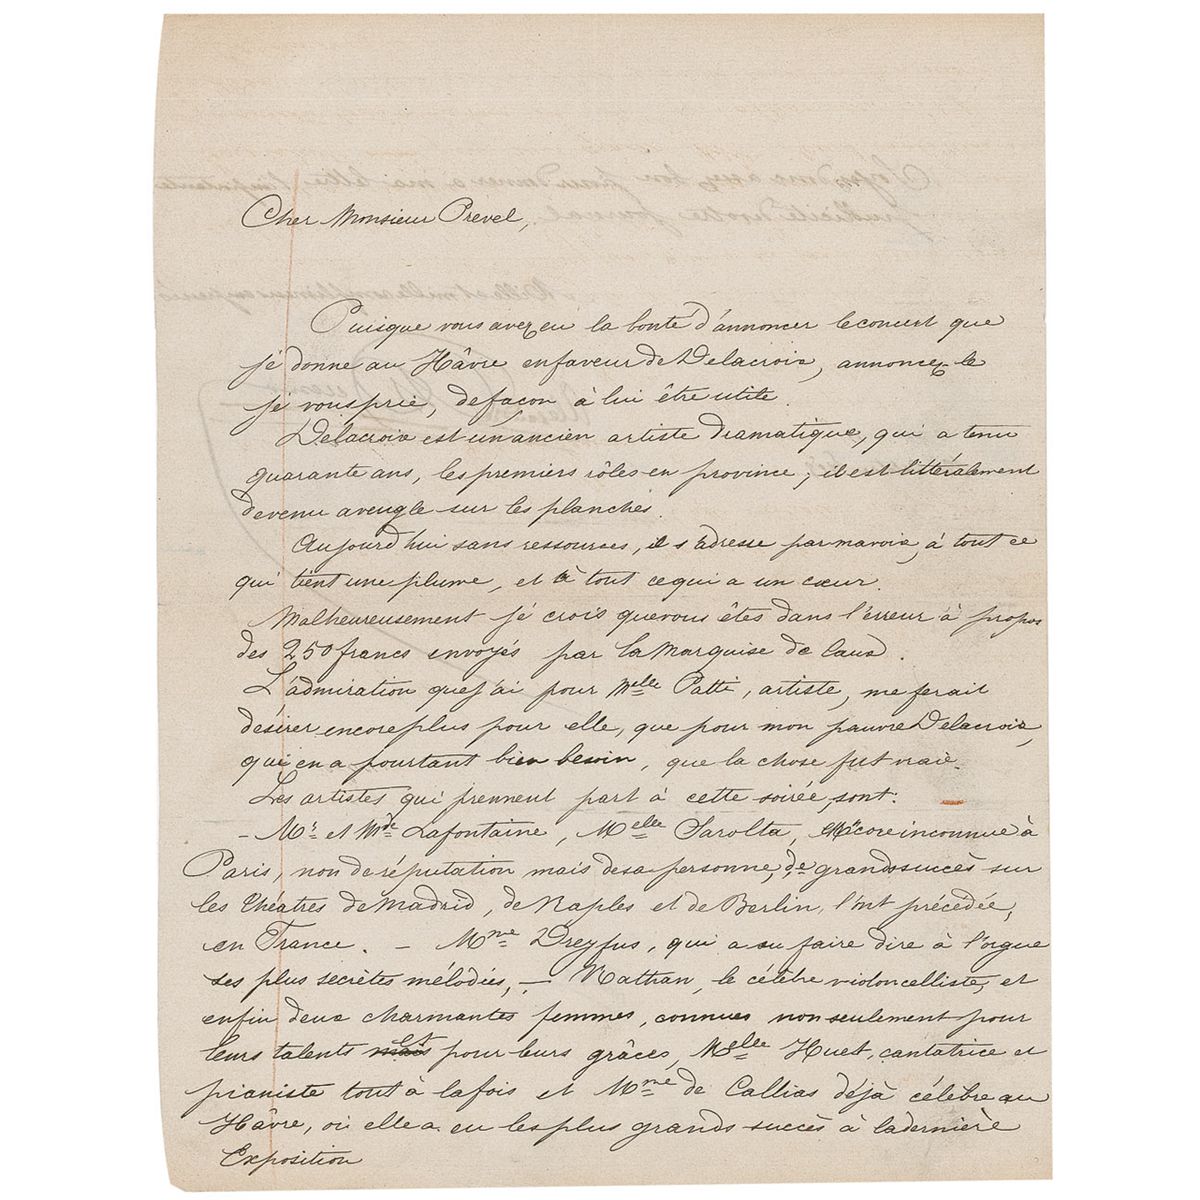 Cher Monsieur Prével,
Puisque vous avez eu la bonté d'annoncer le concert que
je donne au Hâvre en faveur de Delacroix, annoncez-le
je vous prie, de façon à lui être utile.
Delacroix est un ancien artiste dramatique, qui a tenu
quarante ans, les premiers rôles en province, il est littéralement
devenu aveugle sur les planches.
Aujourd'hui sans ressources, il s'adresse par ma voix, à tout ce
qui tient une plume, et à tout ce qui a un cœur.
Malheureusement je crois que vous êtes dans l'erreur à propos
des 250 francs envoyés par la Marquise de Caux.
L'admiration que j'ai pour Melle Patti, artiste, me ferait
désirer encore plus pour elle, que pour mon pauvre Delacroix,
qui en a pourtant bien besoin, que la chose fut vraie.
Les artistes qui prennent part à cette soirée, sont:
- Mr et Mde Lafontaine, Melle Sarolta, encore inconnue à
Paris, non de réputation mais de sa personne, de grands succès sur
les théatres de Madrid, de Naples et de Berlin, l'ont précédée,
en France. - Mme Dreyfus, qui a su faire dire à l'orgue
ses plus secrètes mélodies, - Nathan, le célèbre violoncelliste, et
enfin deux charmantes femmes, connues non seulement pour
leurs talents mais et pour leurs grâces, Melle Huet, cantatrice et
pianiste tout à la fois et Mme de Callias déjà célèbre au
Hâvre, où elle a eu les plus grands succès à la dernière
Exposition